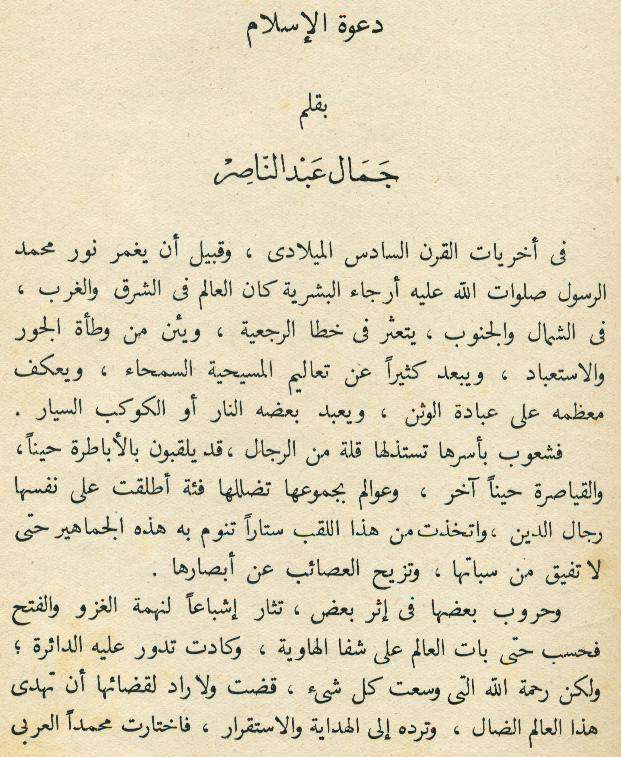 دعوة الإسلام
بقلم
جَمَال عَبْدالنَّاصِرْ
فى أخريات القرن السادس الميلادى ، وقبيل أن يغمر نور محمد
الرسول صلوات الله عليه أرجاء البشرية كان العالم فى الشرق والغرب ،
فى الشمال والجنوب ، يتعثر فى خطا الرجعية ، ويئن من وطأة الجور
والاستعباد ، ويبعد كثيراً عن تعاليم المسيحية السمحاء ، ويعكف
معظمه على عبادة الوثن ، ويعبد بعضه النار أو الكوكب السيار .
فشعوب بأسرها تستذلها قلة من الرجال ، قد يلقبون بالأباطرة حيناً ،
والقياصرة حيناً آخر ، وعوالم بجموعها تضللها فئة أطلقت على نفسها
رجال الدين ، واتخذت من هذا اللقب ستاراً تنوم به هذه الجماهير حتى
لا تفيق من سباتها ، وتزيح العصائب عن أبصارها .
وحروب بعضها فى إثر بعض ، تثار إشباعاً لنهمة الغزو والفتح
فحسب حتى بات العالم على شفا الهاوية ، وكادت تدور عليه الدائرة ؛
ولكن رحمة الله التى وسعت كل شىء ، قضت ولا راد لقضائها أن تهدى
هذا العالم الضال ، وترده إلى الهداية والاستقرار ، فاختارت محمداً العربى